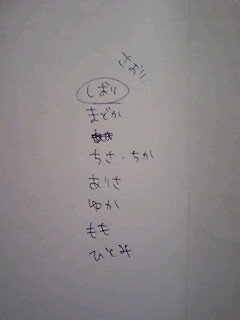 さおり
しおり
まどか
ちさ・ちか
ありさ
ゆか
もも
ひとみ